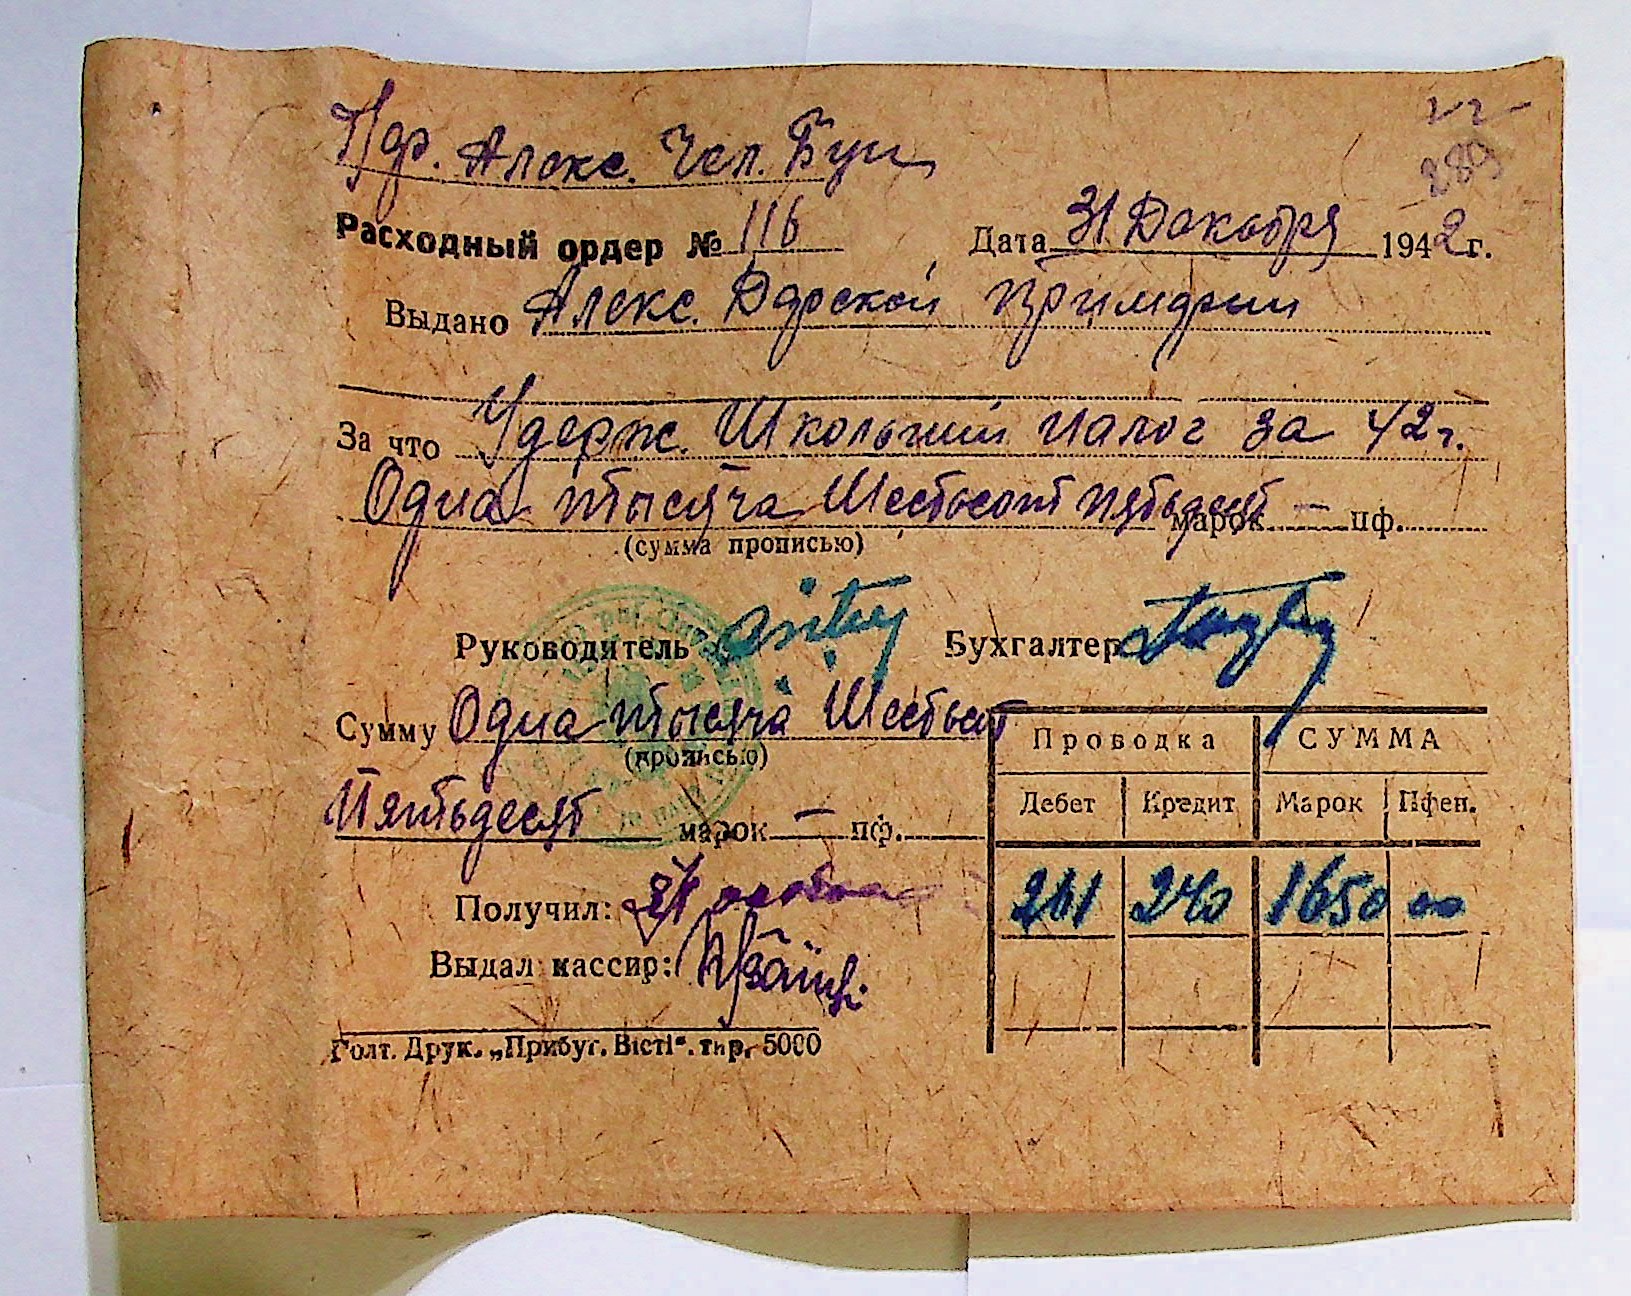 289
Алекс.
Расходный ордер № 116 Дата 31 Декабря 1942 г.
Выдано Алекс. примарии
За что Удерж. Школьный налог за 42 г.
Одна тысяча Шестьсот пятьдесят марок — пф.
(сумма прописью)
Руководитель Бухгалтер
Сумму Одна тысяча Шестьсот
(прописью)
Пятьдесят марок — пф.
Проводка СУММА
Дебет Кредит Марок Пфен.
Получил:
261 240 1650 00
Выдал кассир:
Голт. Друк. „Прибуг. Вісті“. тир. 5000